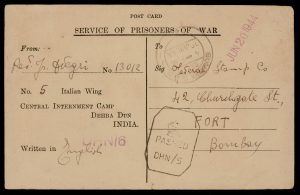 POST CARD
SERVICE OF PRISONERS OF WAR
From:-
To
No 13012
Sig Federal Stamp Co
No. 5 Italian Wing
CENTRAL INTERNMENT CAMP
DEHRA DUN
INDIA.
42, Churchgate St.,
FORT
Bombay
Written in English
JUN 20 1944
DHN/6
PASSED
DHN/5